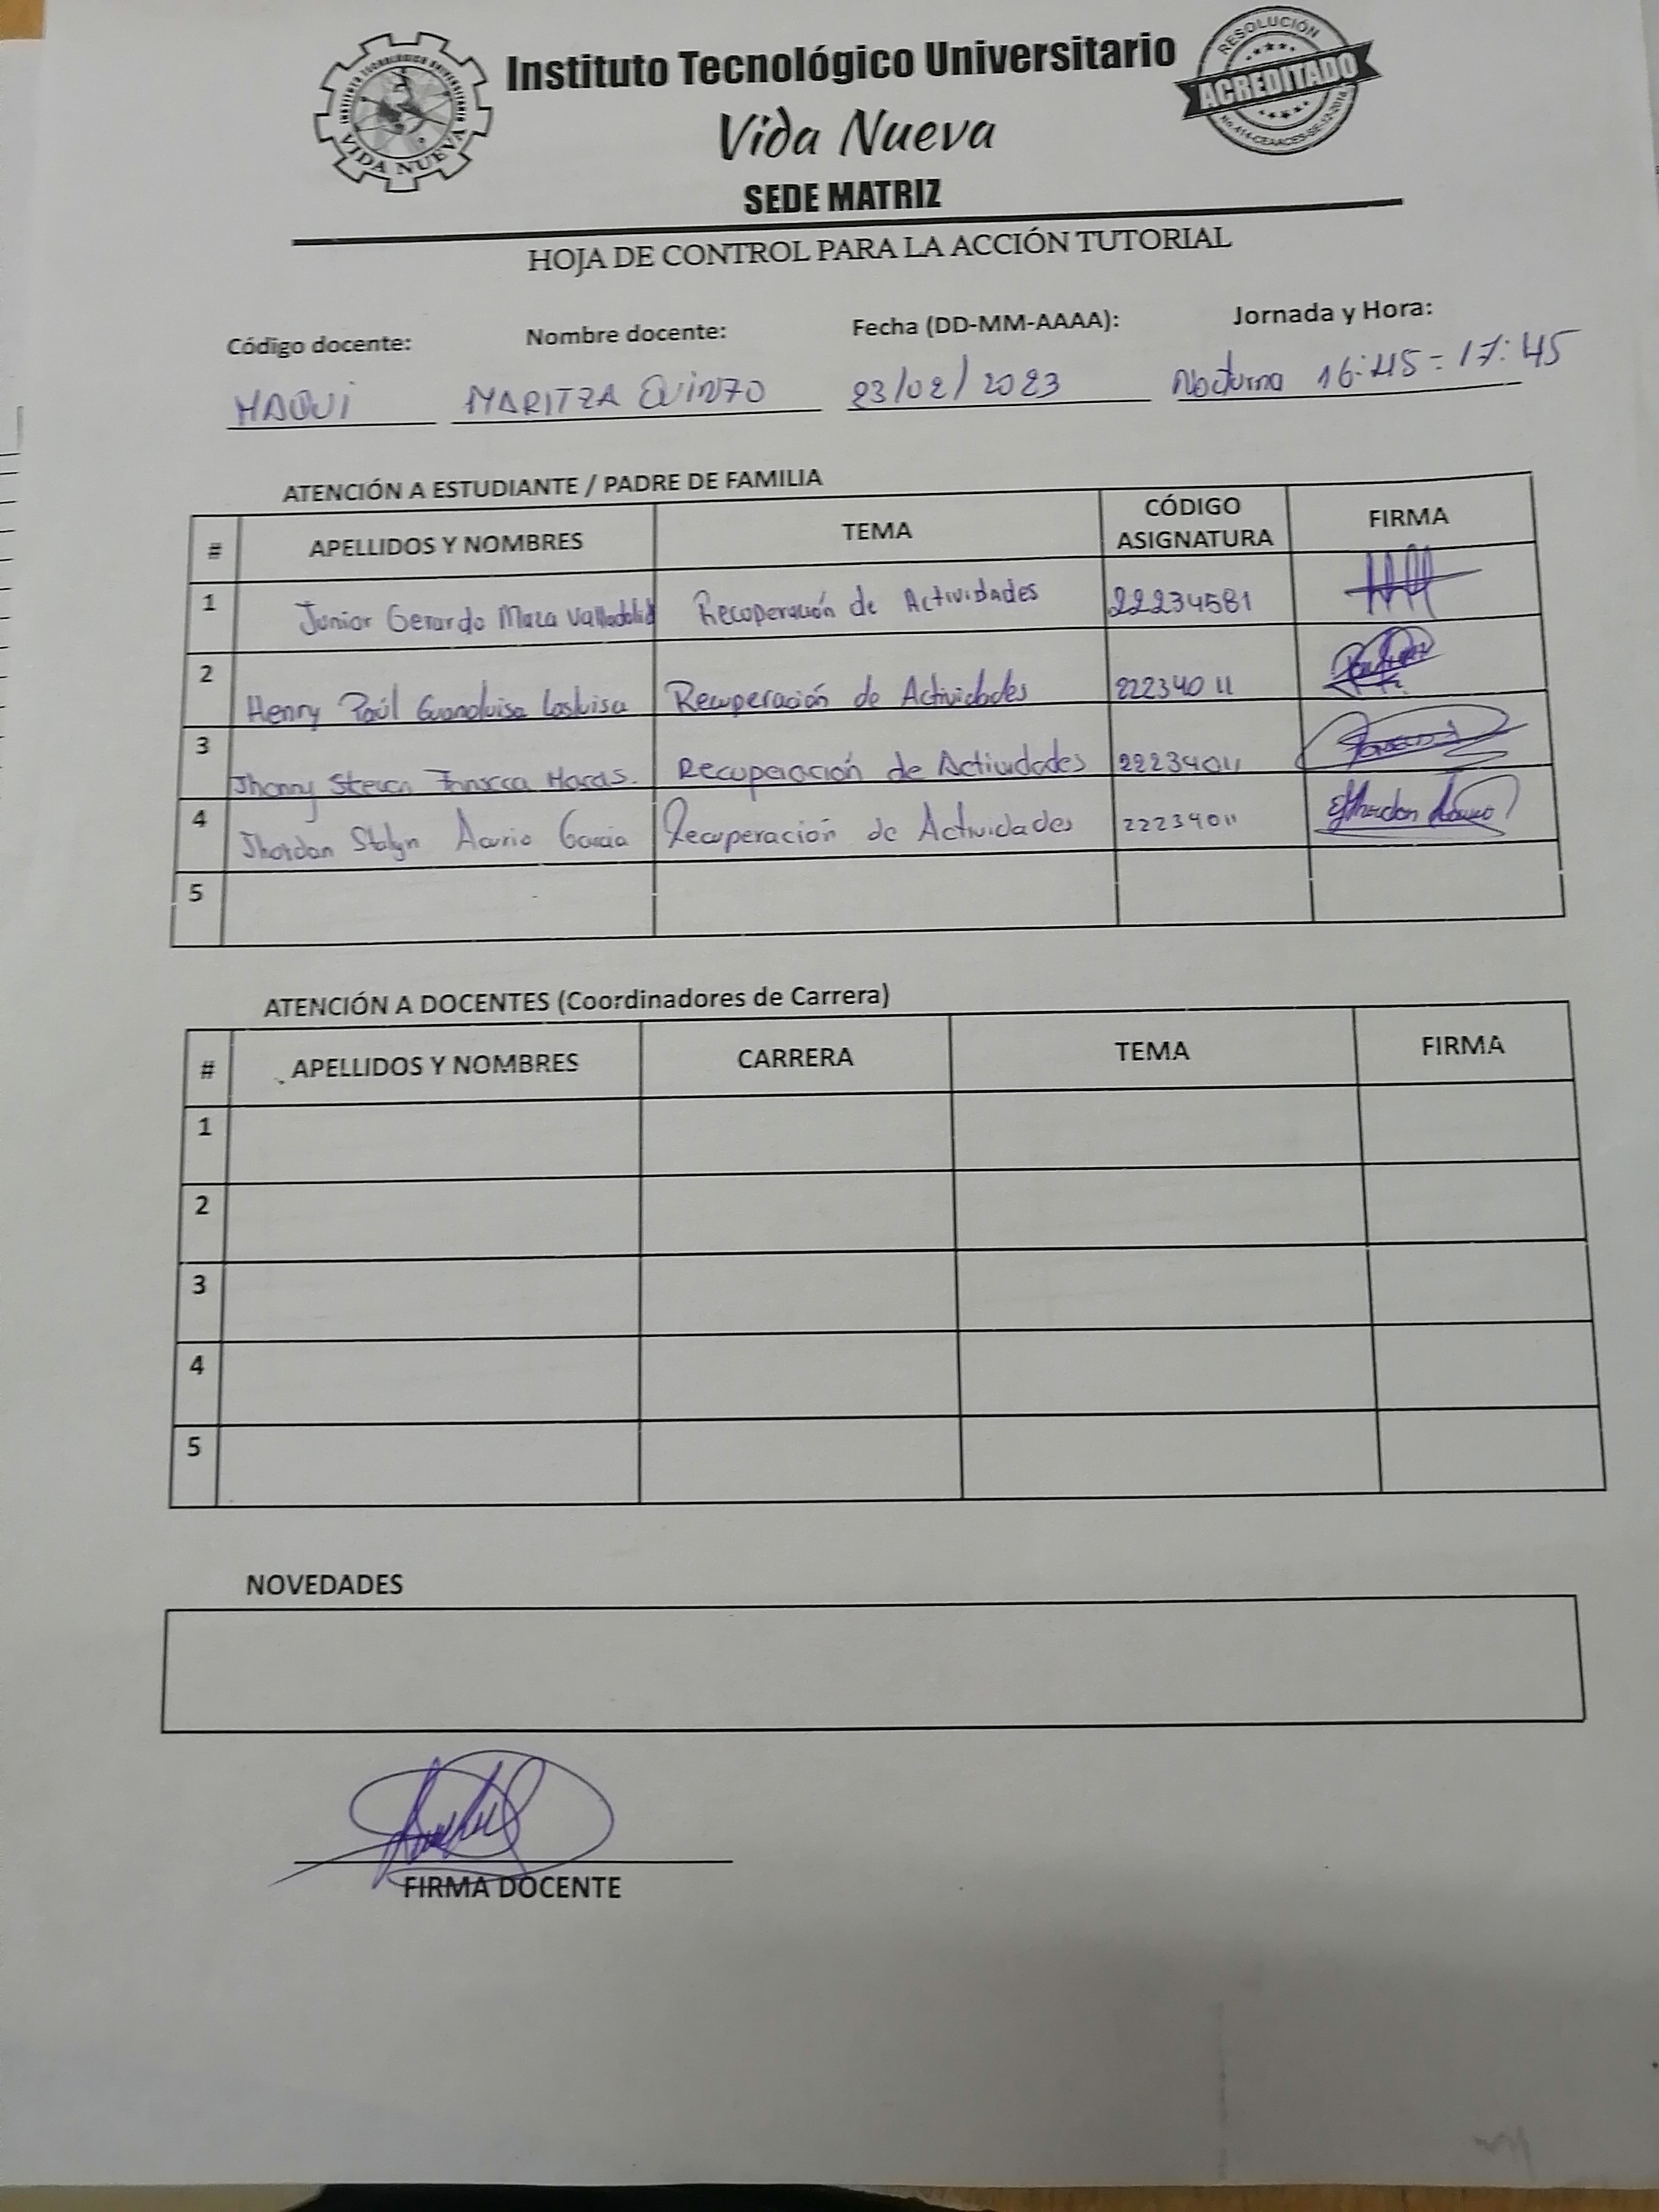 Instituto Tecnológico Universitario
Vida Nueva
SEDE MATRIZ
INSTITUTO TECNOLÓGICO UNIVERSITARIO
VIDA NUEVA
RESOLUCIÓN
ACREDITADO
HOJA DE CONTROL PARA LA ACCIÓN TUTORIAL
Código docente: Nombre docente: Fecha (DD-MM-AAAA): Jornada y Hora:
MAQUI MARITZA QUINZO 23/02/2023 Nocturna 16:45 - 17:45
ATENCIÓN A ESTUDIANTE / PADRE DE FAMILIA
# APELLIDOS Y NOMBRES TEMA CÓDIGO ASIGNATURA FIRMA
1 Junior Gerardo Maza Valladolid Recoperación de Actividades 22234581
2 Henry Paúl Guanoluisa Lasluisa Recuperación de Actividades 22234011
3 Jhonny Steven Recuperación de Actividades 22234011
4 Jhordan Stalyn Acurio Garcia Recuperación de Actividades 22234011
5
ATENCIÓN A DOCENTES (Coordinadores de Carrera)
# APELLIDOS Y NOMBRES CARRERA TEMA FIRMA
1
2
3
4
5
NOVEDADES
FIRMA DOCENTE